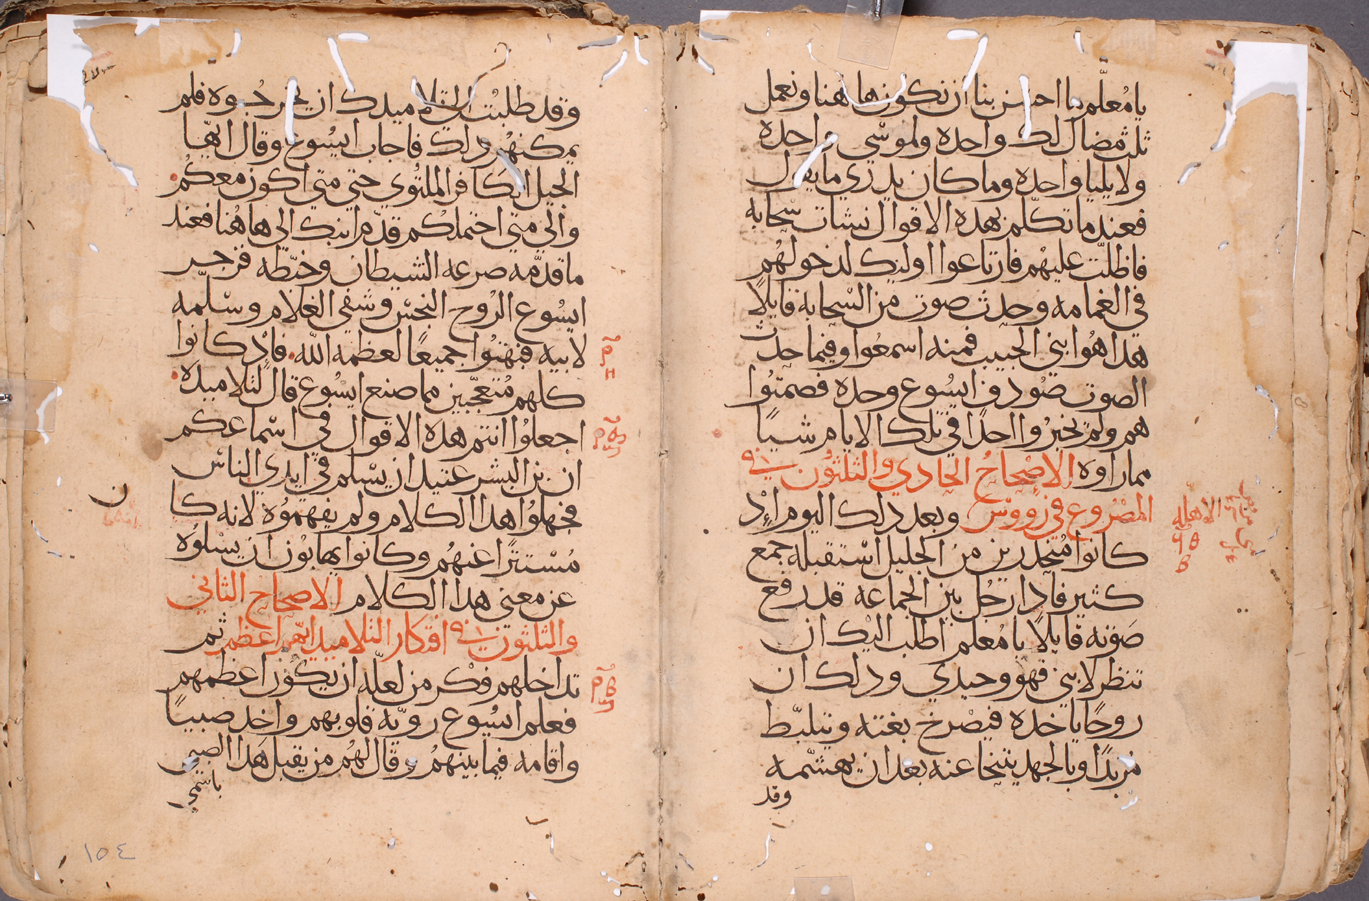 يا معلم ما احسن بنا ان نكون هاهنا ونعمل
ثلث مضال لك واحده ولموسي واحده
ولايليا واحده وما كان يدري ما يقول
فعند ما تكلم بهده الاقوال نشات سحابه
فاظلت عليهم فارتاعوا اوليك لدخولهم
في الغمامه وحدث صوت من السحابه قايلًا
هدا هو ابني الحبيب فمنه اسمعوا وفيما حدث
الصوت صودف ايسوع وحده فصمتوا
هم ولم يخبروا احدًا في تلك الايام شيًا
مما راوه الاصحاح الحادي والثلثون
المصروع في رووس وبعد دلك اليوم اد
كانوا منحدرين من الجليل استقبله جمع
كثير فادا رجل بين الجماعه قد رفع
صوته قايلًا يا معلم اطلب اليك ان
تنظر لابني فهو وحيدي ودلك ان
روحًا ياخده فيصرخ بغته ويتلبط
مزبدًا وبالجهد يتنحا عنه بعد ان يهشمه
وقد
وقد طلبت الي تلاميدك ان يخرجوه فلم
يمكنهم دلك فاجاب ايسوع وقال ايها
الجيل الكافر الملتوي حتي متي اكون معكم
والي متي احتملكم قدم ابنك الي هاهنا فعند
ما قدمه صرعه الشيطان وخبطه فزجر
ايسوع الروح النجس وشفي الغلام وسلمه
لابيه فبهتوا جميعًا لعظمه الله فاد كانوا
كلهم متعجبين مما صنع ايسوع قال لتلاميده
اجعلوا انتم هده الاقوال في اسماعكم
ان بن البشر عتيد ان يسلم في ايدي الناس
فجهلوا هدا الكلام ولم يفهموه لانه كا
ن
مستترًا عنهم وكانوا يهابون ان يسلوه
عن معني هدا الكلام الاصحاح الثاني
والثلثون افتكار التلاميد ايهم اعظم ثم
تداخلهم فكر من لعله ان يكون اعظمهم
فعلم ايسوع رويه قلوبهم واخد صبيًا
واقامه فيما بينهم وقال لهم من يقبل هدا الصبي
باسمي
١٥٤